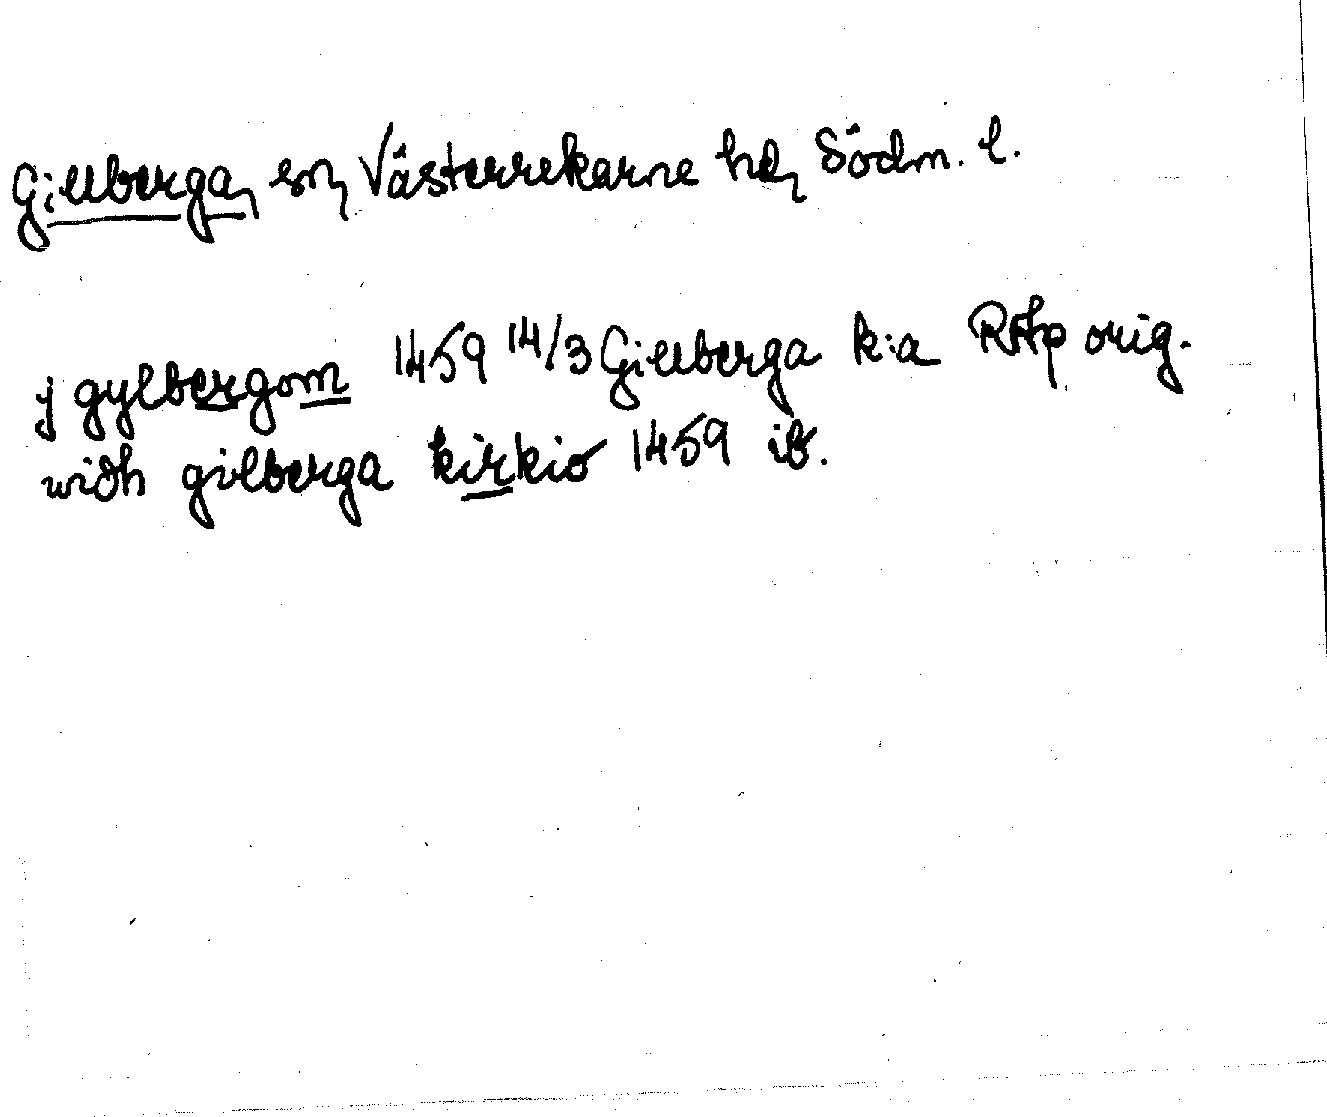 Gillberga, sn, Västerrekarne hd, Södm. l.
j gylbergom 1459 14/3 Gillberga k:a RAp orig.
widh gilberga kirkio 1459 ib.